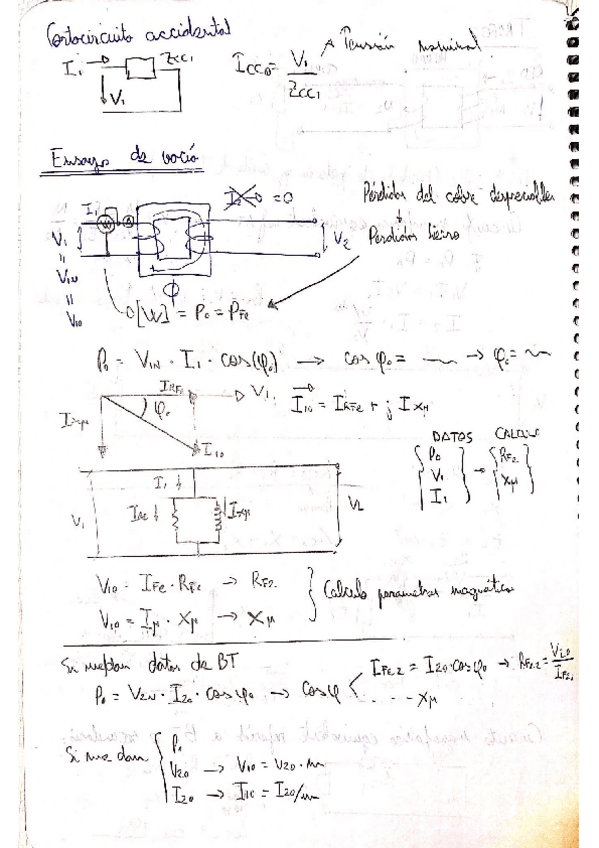 Cortocircuito accidental
I₁ Zcc₁ V₁
Icc₀ = V₁ / Zcc₁ → Tensión nominal
Ensayo de vacío
I₁ W A I₂ = 0
V₁ = V₁N = V₁₀
V₂
ϕ
Pérdidas del cobre despreciables
↓
Perdidas hierro
[W] = P₀ = PFe
P₀ = V₁N · I₁ · cos(φ₀) → cos φ₀ = → φ₀ =
IRFe V₁ φ₀ IXμ I₁₀
I₁₀ = IRFe + j IXμ
DATOS CALCULO
P₀ V₁ I₁ → RFe Xμ
I₁ IRe IXμ V₁
V₁₀ = IFe · RFe → RFe
V₁₀ = Iμ · Xμ → Xμ
Calculo parametros magnéticos
Si me dan datos de BT
P₀ = V₂N · I₂₀ · cos φ₀ → cos φ
IFe2 = I₂₀ · cos φ₀ → RFe2 = V₂₀ / IFe2
.... Xμ
Si me dan
P₀
V₂₀ → V₁₀ = V₂₀ · m
I₂₀ → I₁₀ = I₂₀/m